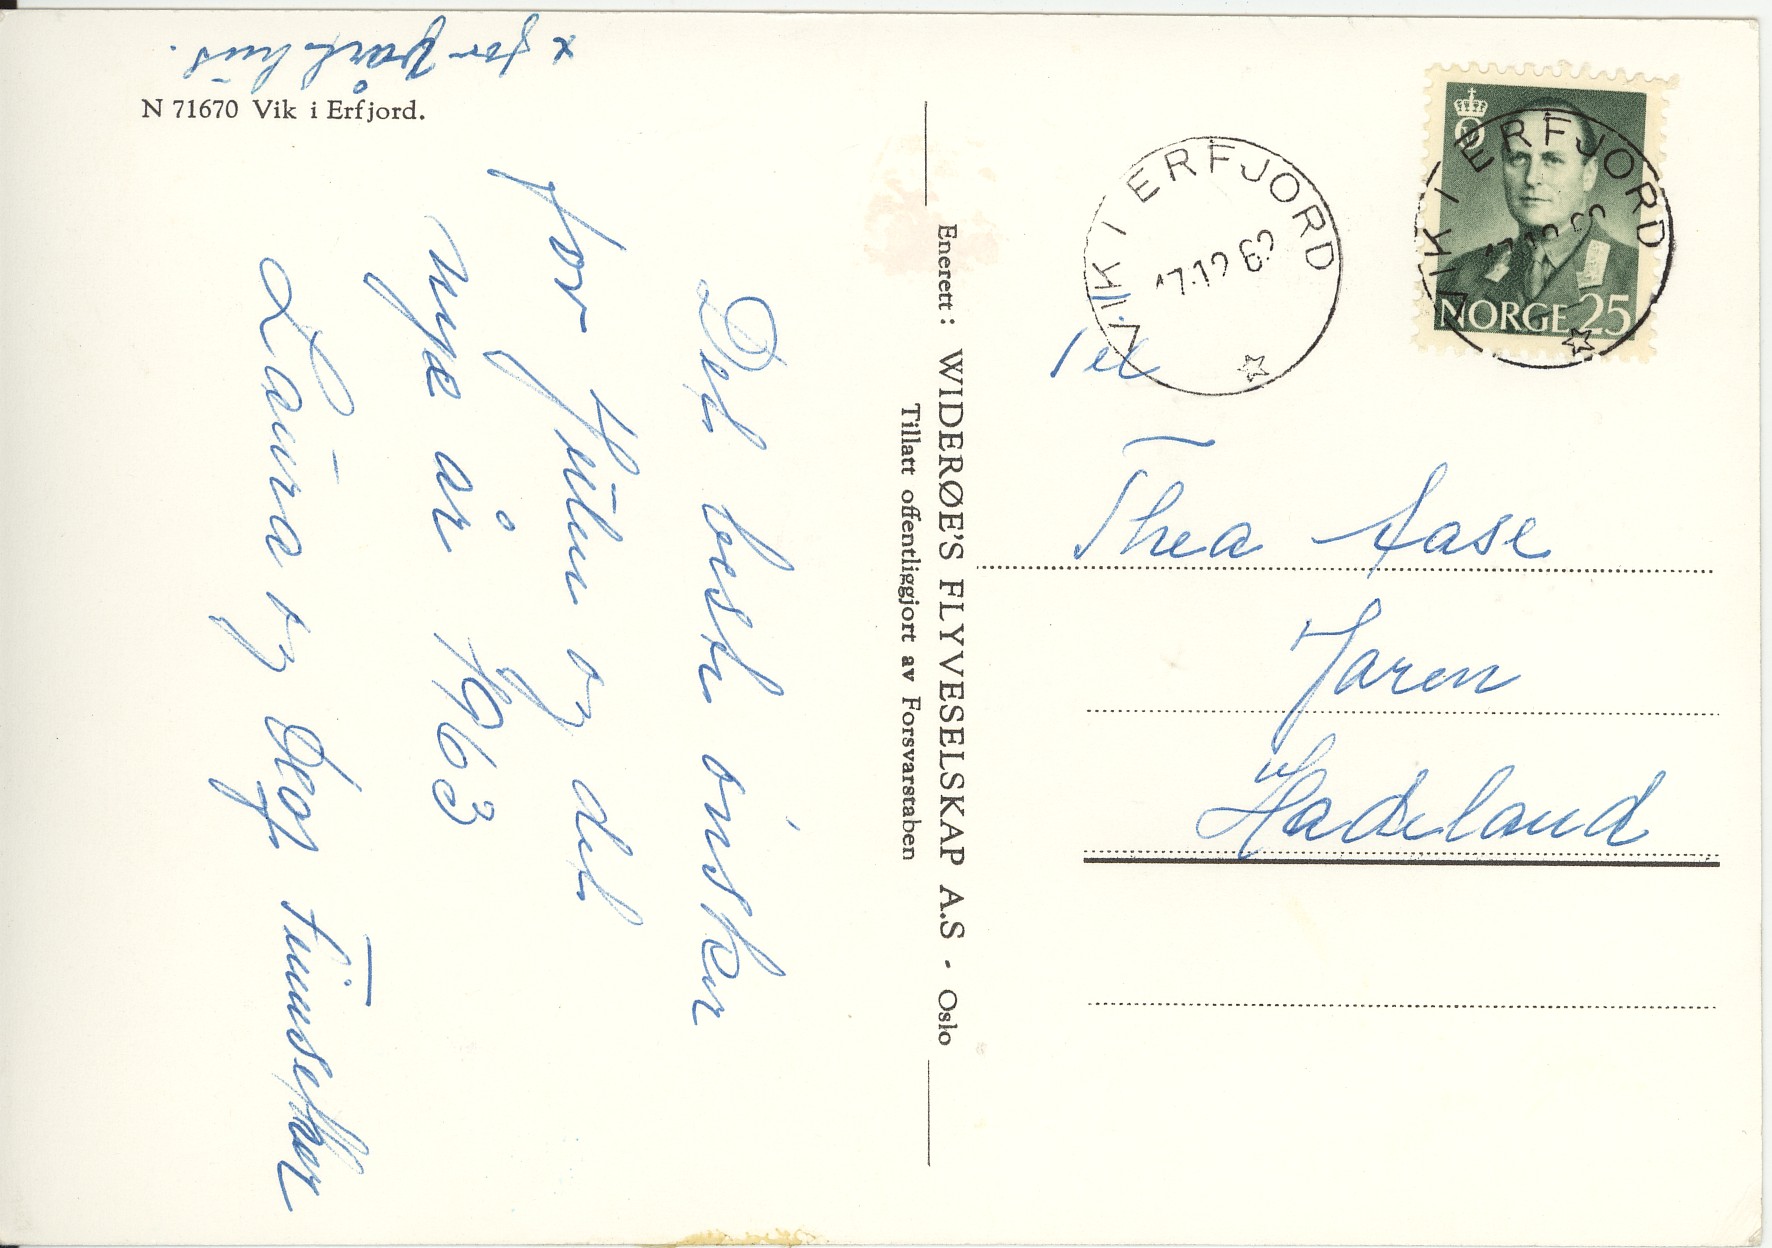 x for vårt hus.
N 71670 Vik i Erfjord.
Det beste ønsker
for Julen og det
nye år 1963
Laura og
Enerett: WIDERØE'S FLYVESELSKAP A.S - Oslo
Tillatt offentliggjort av Forsvarstaben
VIK I ERFJORD
17.12 62
NORGE 25
VIK I ERFJORD
Til
Thea Aase
Jaren
Hadeland